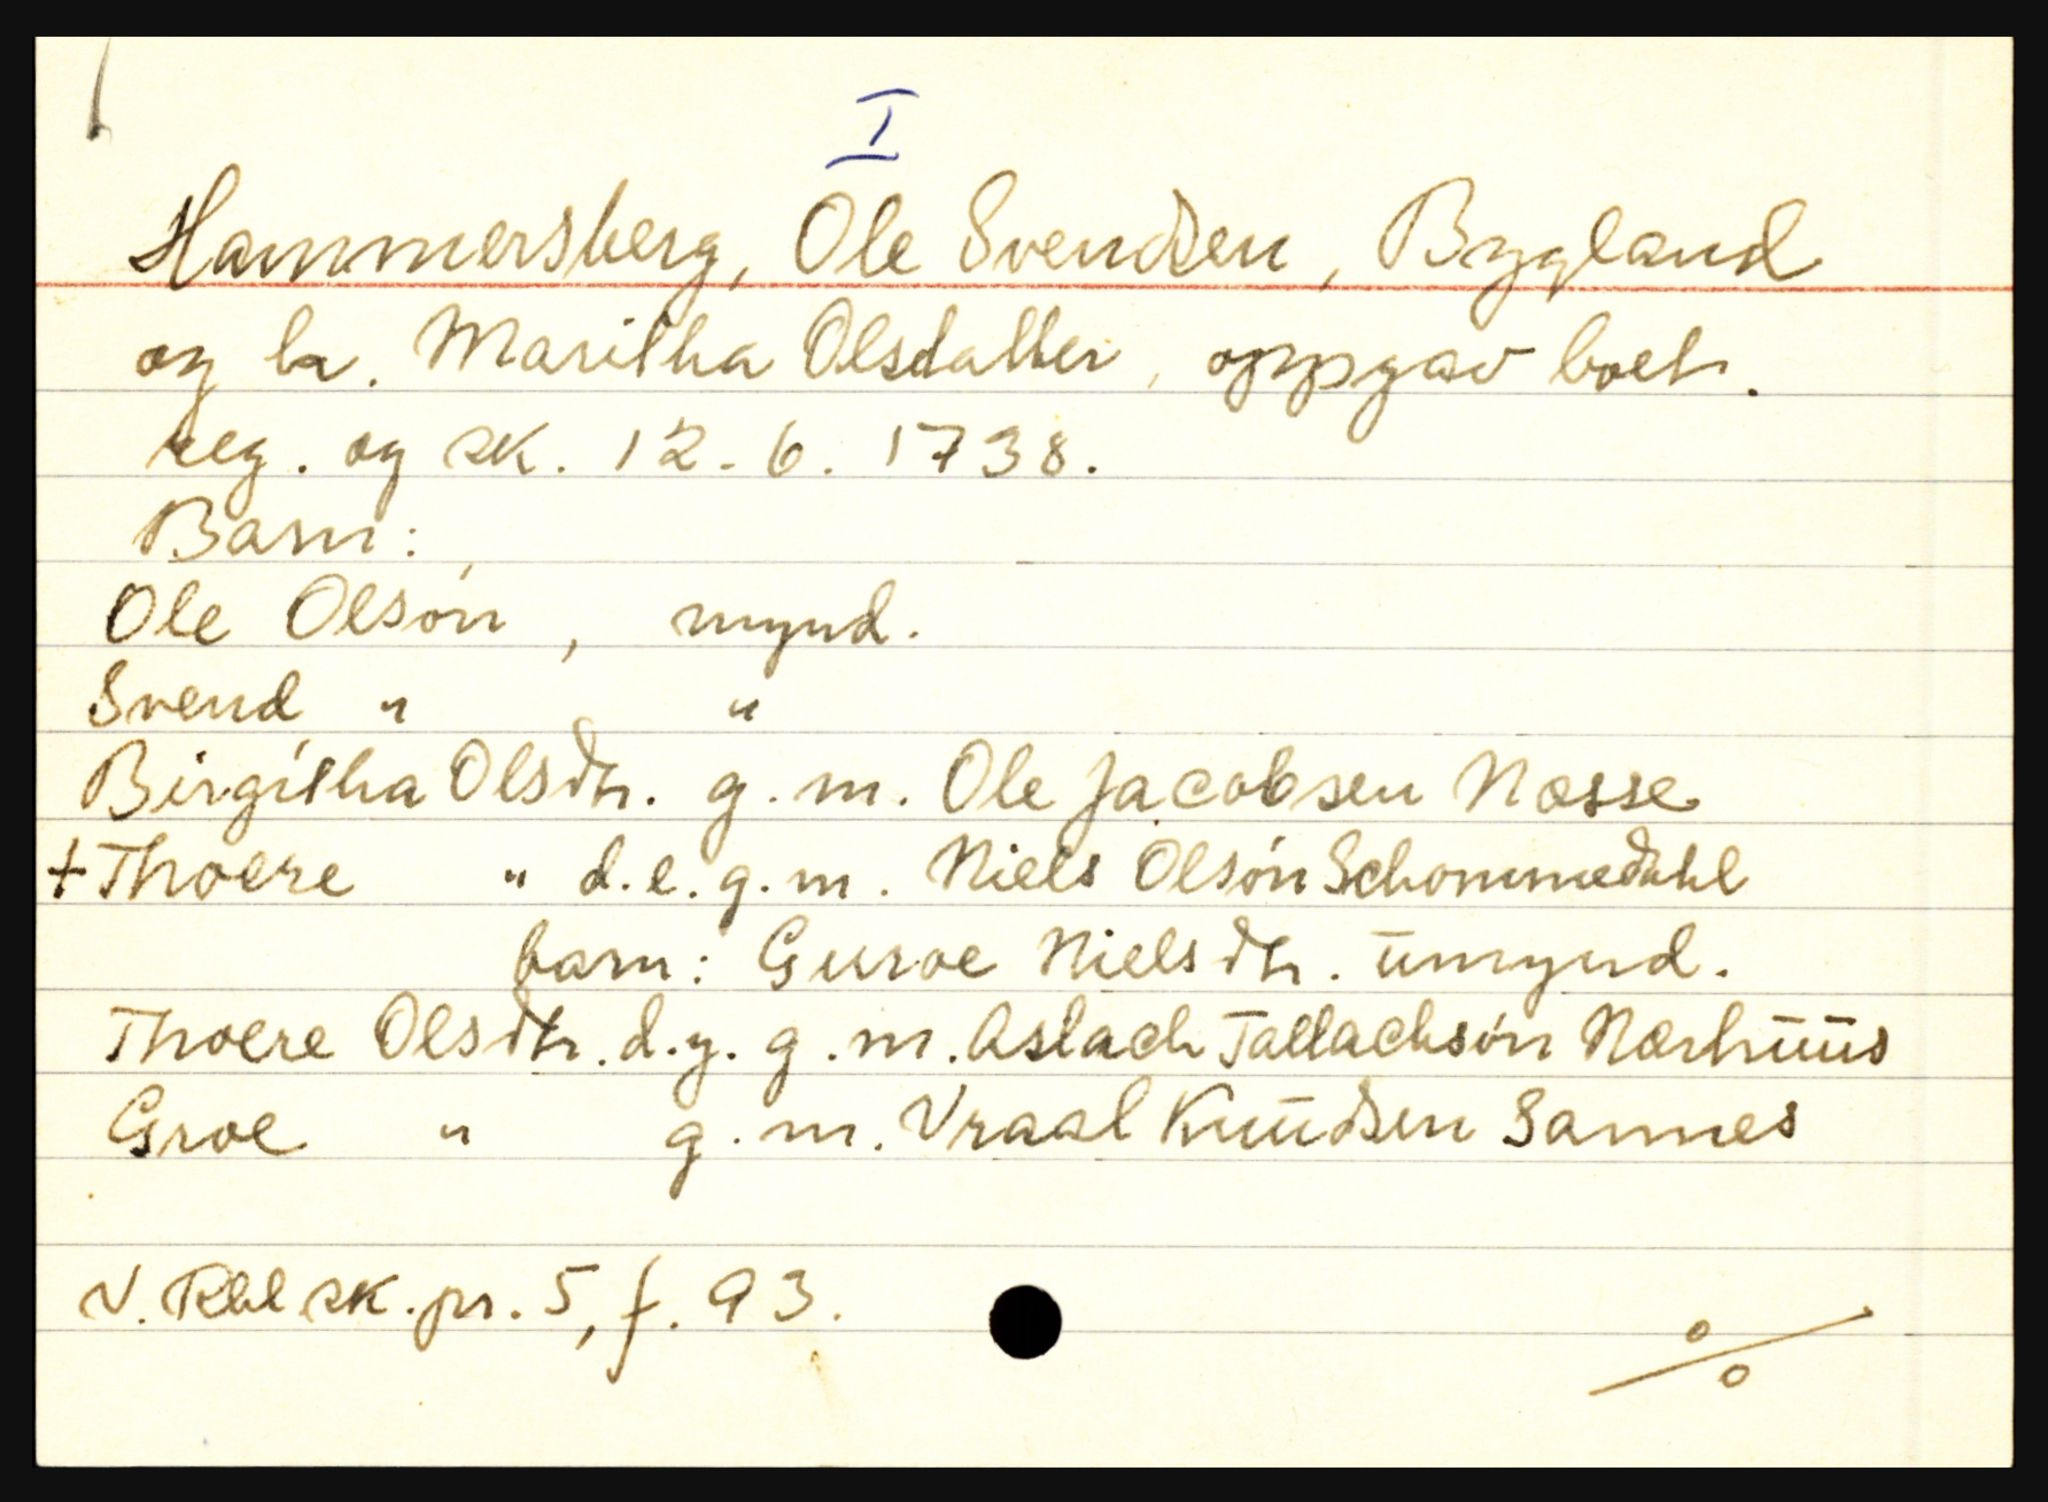 I
Hammersberg, Ole Svendsen, Bygland
og h. Maritha Olsdatter, oppgav boet.
reg. og sk. 12.6.1738.
Barn:
Ole Olsón, mynd.
Svend " "
Birgitha Olsdtr. g.m. Ole Jacobsen Næsse
+Thoere " d.e. g.m. Niels Olsón Schommedahl
barn: Guroe Nielsdtr. ūmynd.
Thoere Olsdtr. d.y. g.m. Aslach Tallachsón Nærhūūs
Groe " g.m. Vraal Knūdsen Sannes
V. Rbl sk.pr. 5, f. 93.
%